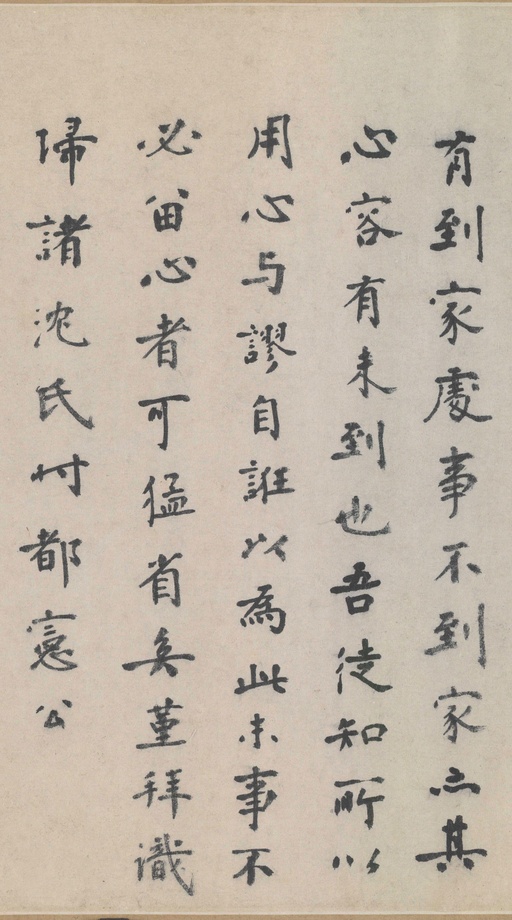 有到家處事不到家亦其
心容有未到也吾徒知所以
用心与謬自誑以為此末事不
必留心者可猛省矣堇拜識
帰諸沈氏都憲公